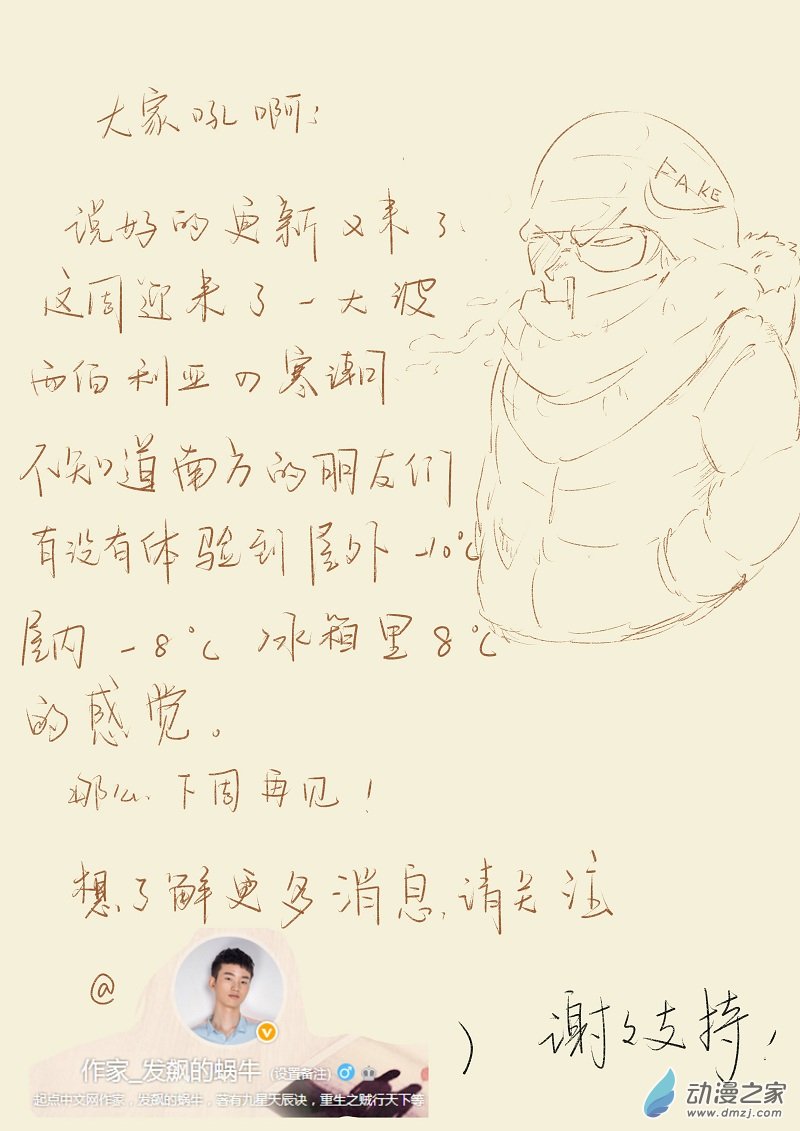 大家吼啊:
FAKE
说好的更新又来了
这周迎来了一大波
西伯利亚の寒潮
不知道南方的朋友们
有没有体验到屋外-10℃
屋内-8℃ 冰箱里8℃
的感觉。
那么.下周再见!
想了解更多消息,请关注
@
作家_发飙的蜗牛 (设置备注)
起点中文网作家，发飙的蜗牛，著有九星天辰诀，重生之贼行天下等
) 谢々支持!
动漫之家
www.dmzj.com